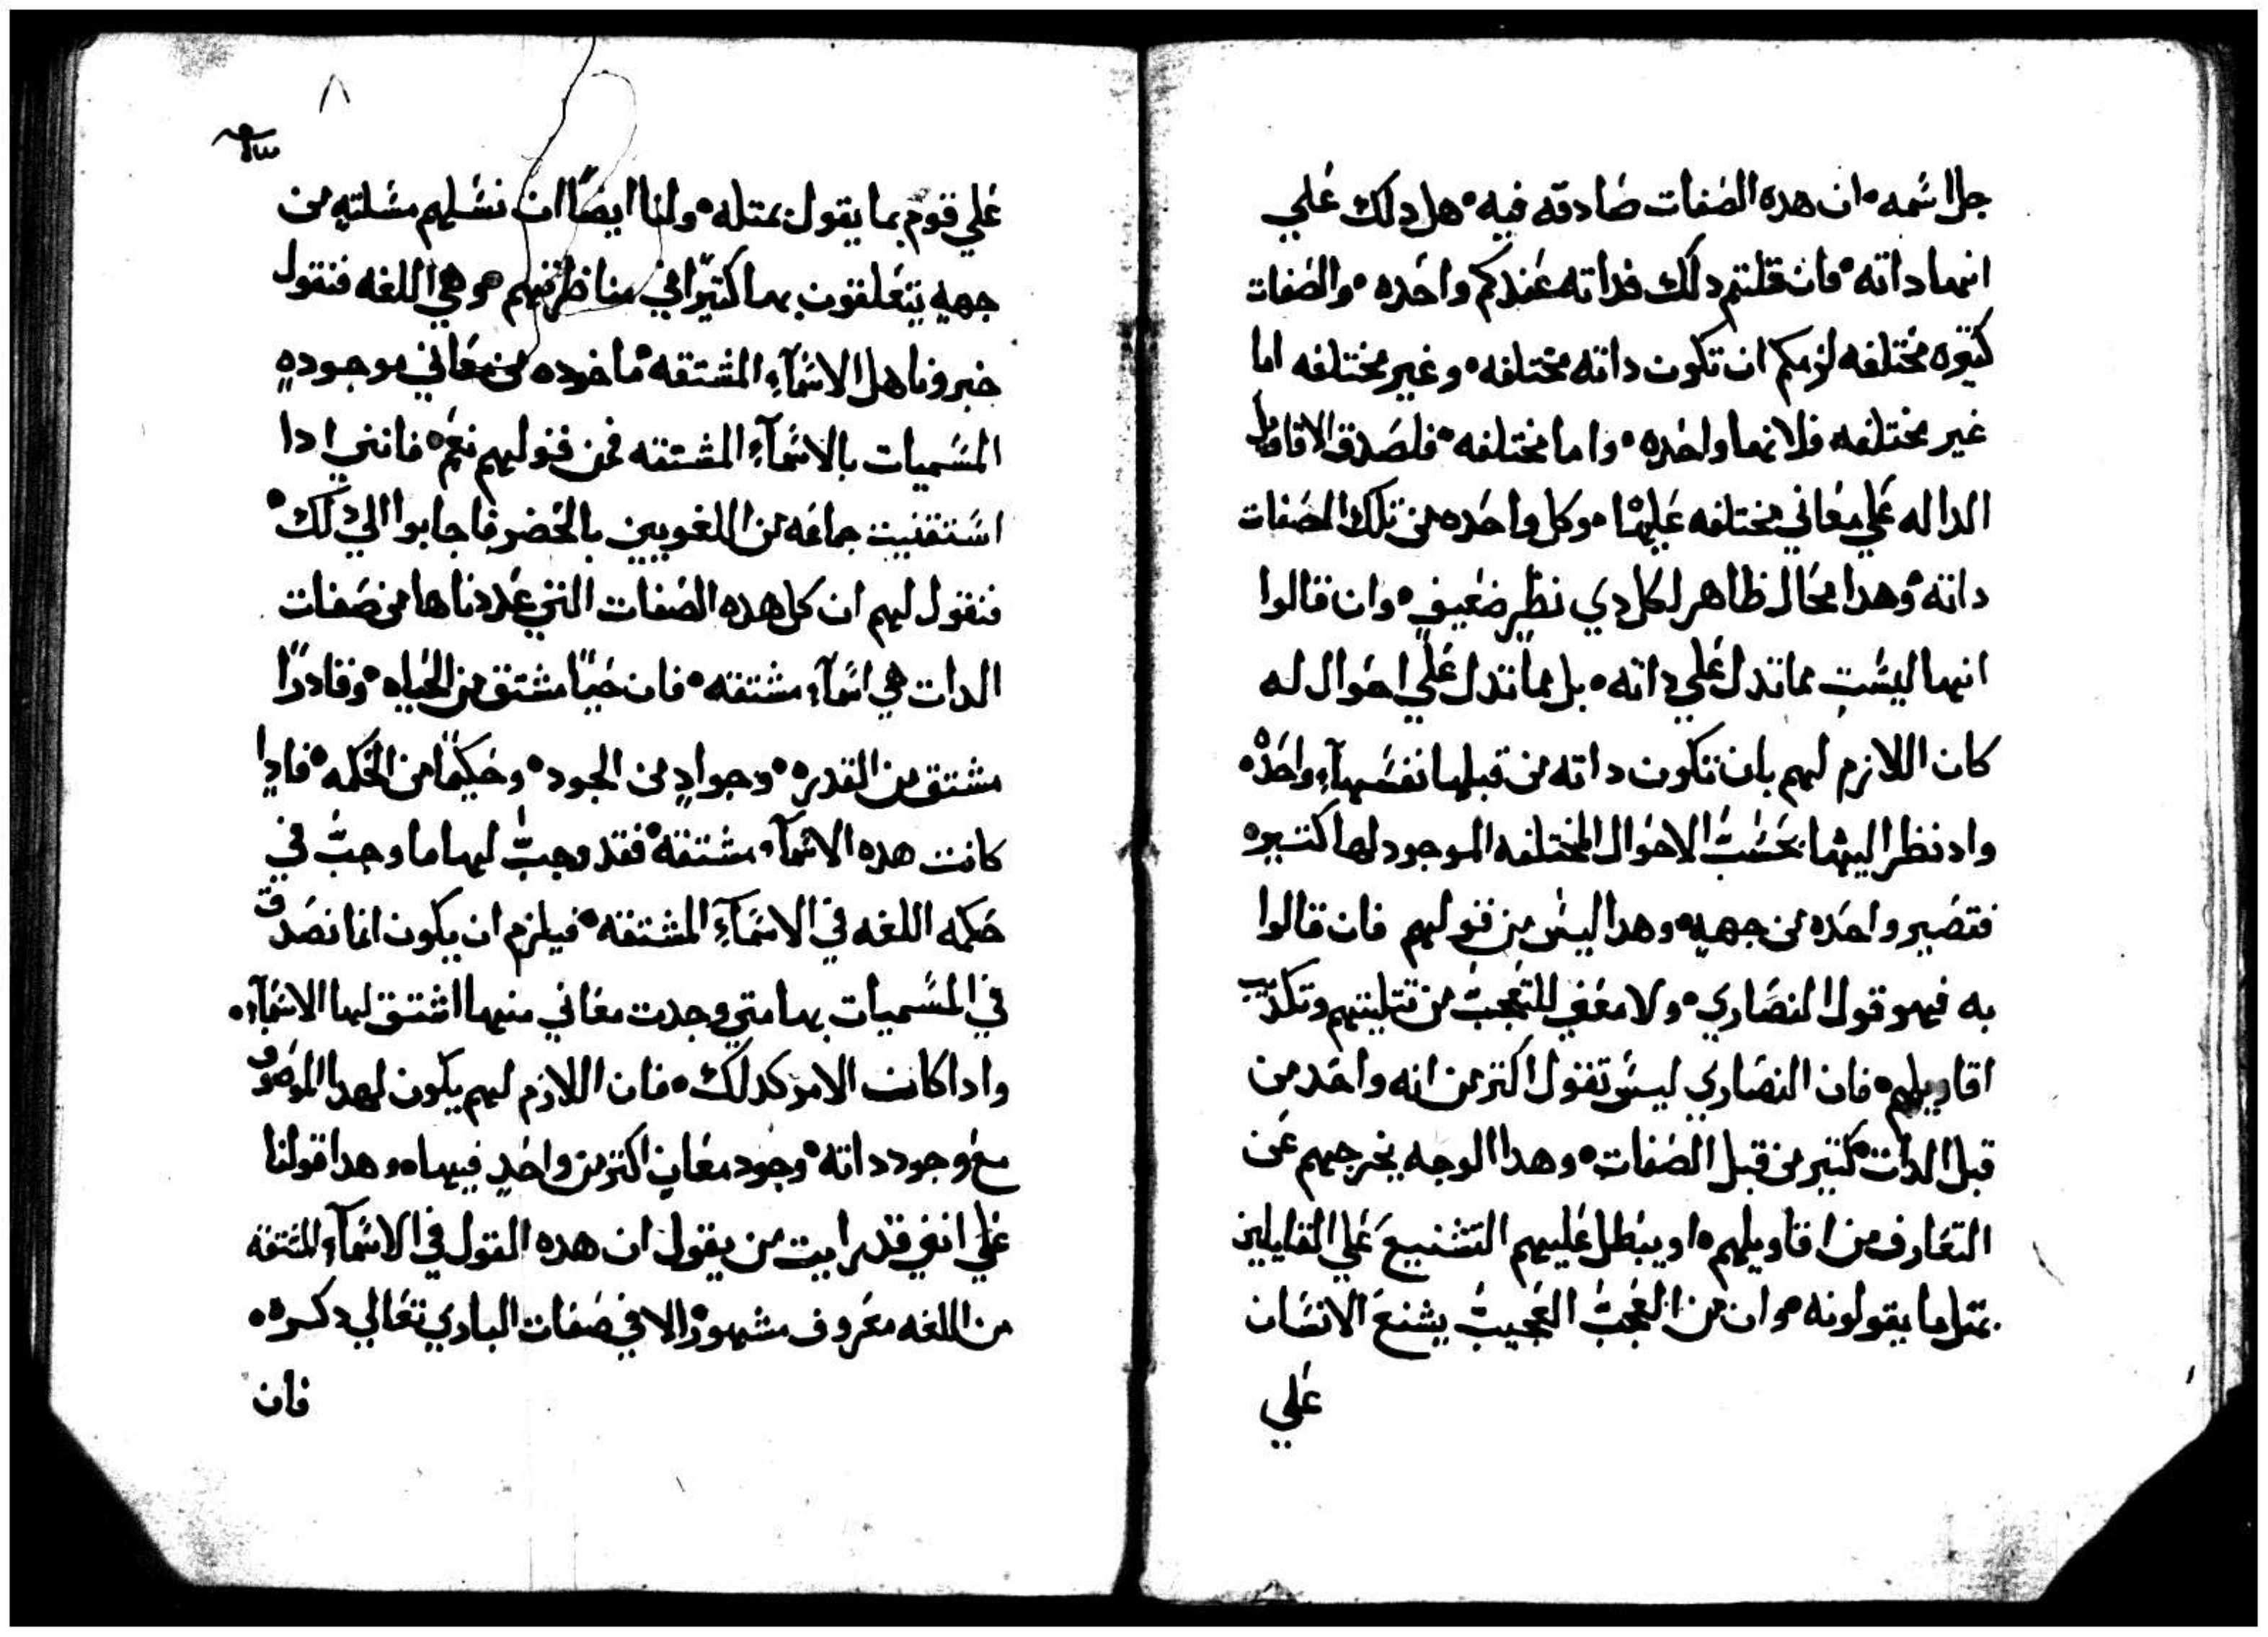 جل اسمه ان هده الصفات صادقه فيه هل دلك علي
انها داته فان قلتم دلك فداته عندكم واحده والصفات
كتيره مختلفه لزمكم ان تكون داته مختلفه وغير مختلفه اما
غير مختلفه فلانها واحده واما مختلفه فلصدق الاقاويل
الداله علي معاني مختلفه عليها وكل واحده من تلك الصفات
داته وهدا محال ظاهر لكل دي نظر ضعيف وان قالوا
انها ليست مما تدل علي داته بل مما تدل علي احوال له
كان اللازم لهم بان تكون داته من قبلها نفسها واحده
واد نظر اليها بحسب الاحوال المختلفه الموجود لها كتيره
فتصير واحده من جهه وهدا ليس من قولهم فان قالوا
به فهو قول النصاري ولا معني للتعجب من تتليتهم وتكدب
اقاويلهم فان النصاري ليس تقول اكتر من انه واحد من
قبل الدات كتير من قبل الصفات وهدا الوجه يخرجهم عن
التعارف من اقاويلهم او يبطل عليهم التشنيع علي القايلين
بمتل ما يقولونه وان من العجب العجيب يشنع الانسان
علي
٨
علي قوم بما يقول بمتله ولنا ايضًا ان نسلهم مسلته من
جهه يتعلقون بها كتيرًا في مناظرتهم وهي اللغه فنقول
خبرونا هل الاسمآء المشتقه ماخوده من معاني موجوده
المسميات بالاسمآء المشتقه فمن قولهم نعم فانني ادا
استفتيت جماعه من اللغويين بالحضر فاجابوا الي دلك
فنقول لهم ان كل هده الصفات التي عددناها من صفات
الدات هي اسمآء مشتقه فان حيًا مشتق من الحياه وقادرًا
مشتق من القدره وجوادٍ من الجود وحكيمًا من الحكمه فادا
كانت هده الاسمآء مشتقه فقد وجب لها ما وجب في
حكمه اللغه في الاسمآء المشتقه فيلزم ان يكون انما تصدق
في المسميات بها متي وجدت معاني منها اشتق لها الاسمآء
وادا كانت الامر كدلك فان اللازم لهم يكون لهدا الموصوف
مع وجود داته وجود معانٍ اكتر من واحدٍ فيها وهدا قولنا
علي انني قد رايت من يقول ان هده القول في الاسمآء المشتقه
من اللغه معروف مشهور الا في صفات الباري تعالي دكره
فان